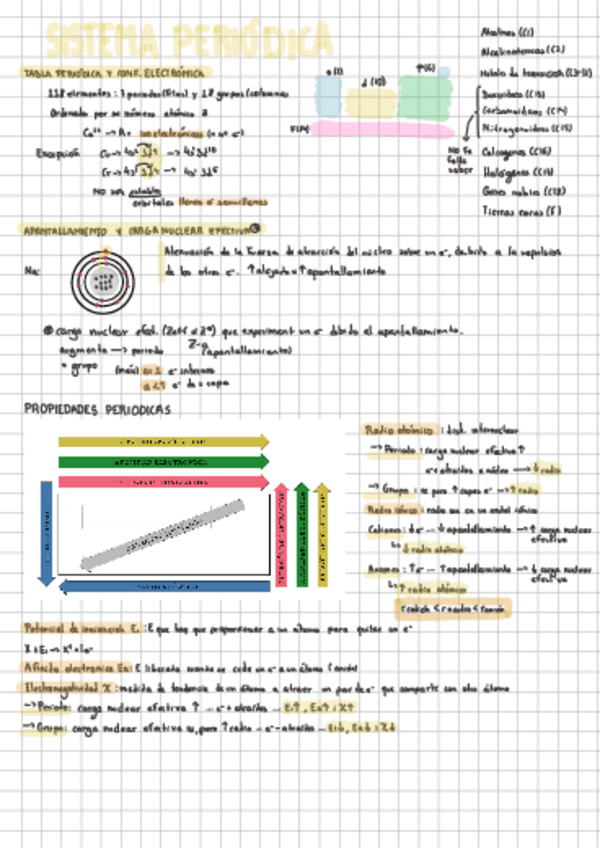 SISTEMA PERIÓDICA
TABLA PERIÓDICA Y CONF. ELECTRÓNICA
118 elementos: 7 periodos (filas) y 18 grupos (columnas
Ordenada por su número atómico Z
isoelectrónicos (= nº e⁻)
Excepción
NO son estables
orbitales llenos o semillenos
s(1)
d(10)
p(6)
F(14)
Alcalinos (C1)
Alcalinotérreos (C2)
Metales de transición (C3-12)
Boroideos (C13)
Carbonoideos (C14)
Nitrogenoideos (C15)
NO fa
falta
saber
Calcógenos (C16)
Halógenos (C17)
Gases nobles (C18)
Tierras raras (F)
APANTALLAMIENTO Y CARGA NUCLEAR EFECTIVA
Na:
Atenuación de la fuerza de atracción del núcleo sobre un e⁻, debido a la repulsión
de los otros e⁻. ↑alejado = ↑apantallamiento
carga nuclear efect. (Zeff o Z*) que experiment un e⁻ debido al apantallamiento.
augmenta → periodo
(apantallamiento)
= grupo
e⁻ internos
e⁻ de = capa
PROPIEDADES PERIODICAS
AFINIDAD ELECTRÓNICA
Radio atómico : dist. internuclear
→ Periodo : carga nuclear efectiva ↑
→ ↓ radio
→ Grupo : ↑ capas e⁻ → ↑ radio
Radio iónico : radio
Cationes : ↓e⁻ → ↓apantallamiento → ↑ carga nuclear
efectiva
↳ ↓ radio atómico
Aniones : ↑e⁻ → ↑apantallamiento → ↓ carga nuclear
efectiva
↳ ↑ radio atómico
Potencial de ionización Eᵢ : E que hay que proporcionar a un átomo para quitar un e⁻
X + Eᵢ → X⁺ + 1e⁻
Afinidad electrónica Ea : E liberada cuando se cede un e⁻ a un átomo
Electronegatividad X : medida de tendencia de un átomo a atraer un par de e⁻ que comparte con otro átomo
→ Periodo : carga nuclear efectiva ↑ – e⁻ + atraídos – Ei↑, Ea↑ : X↑
→ Grupo : carga nuclear efectiva ≈, pero ↑radio – e⁻ - atraídos – Ei↓, Ea↓ : X↓